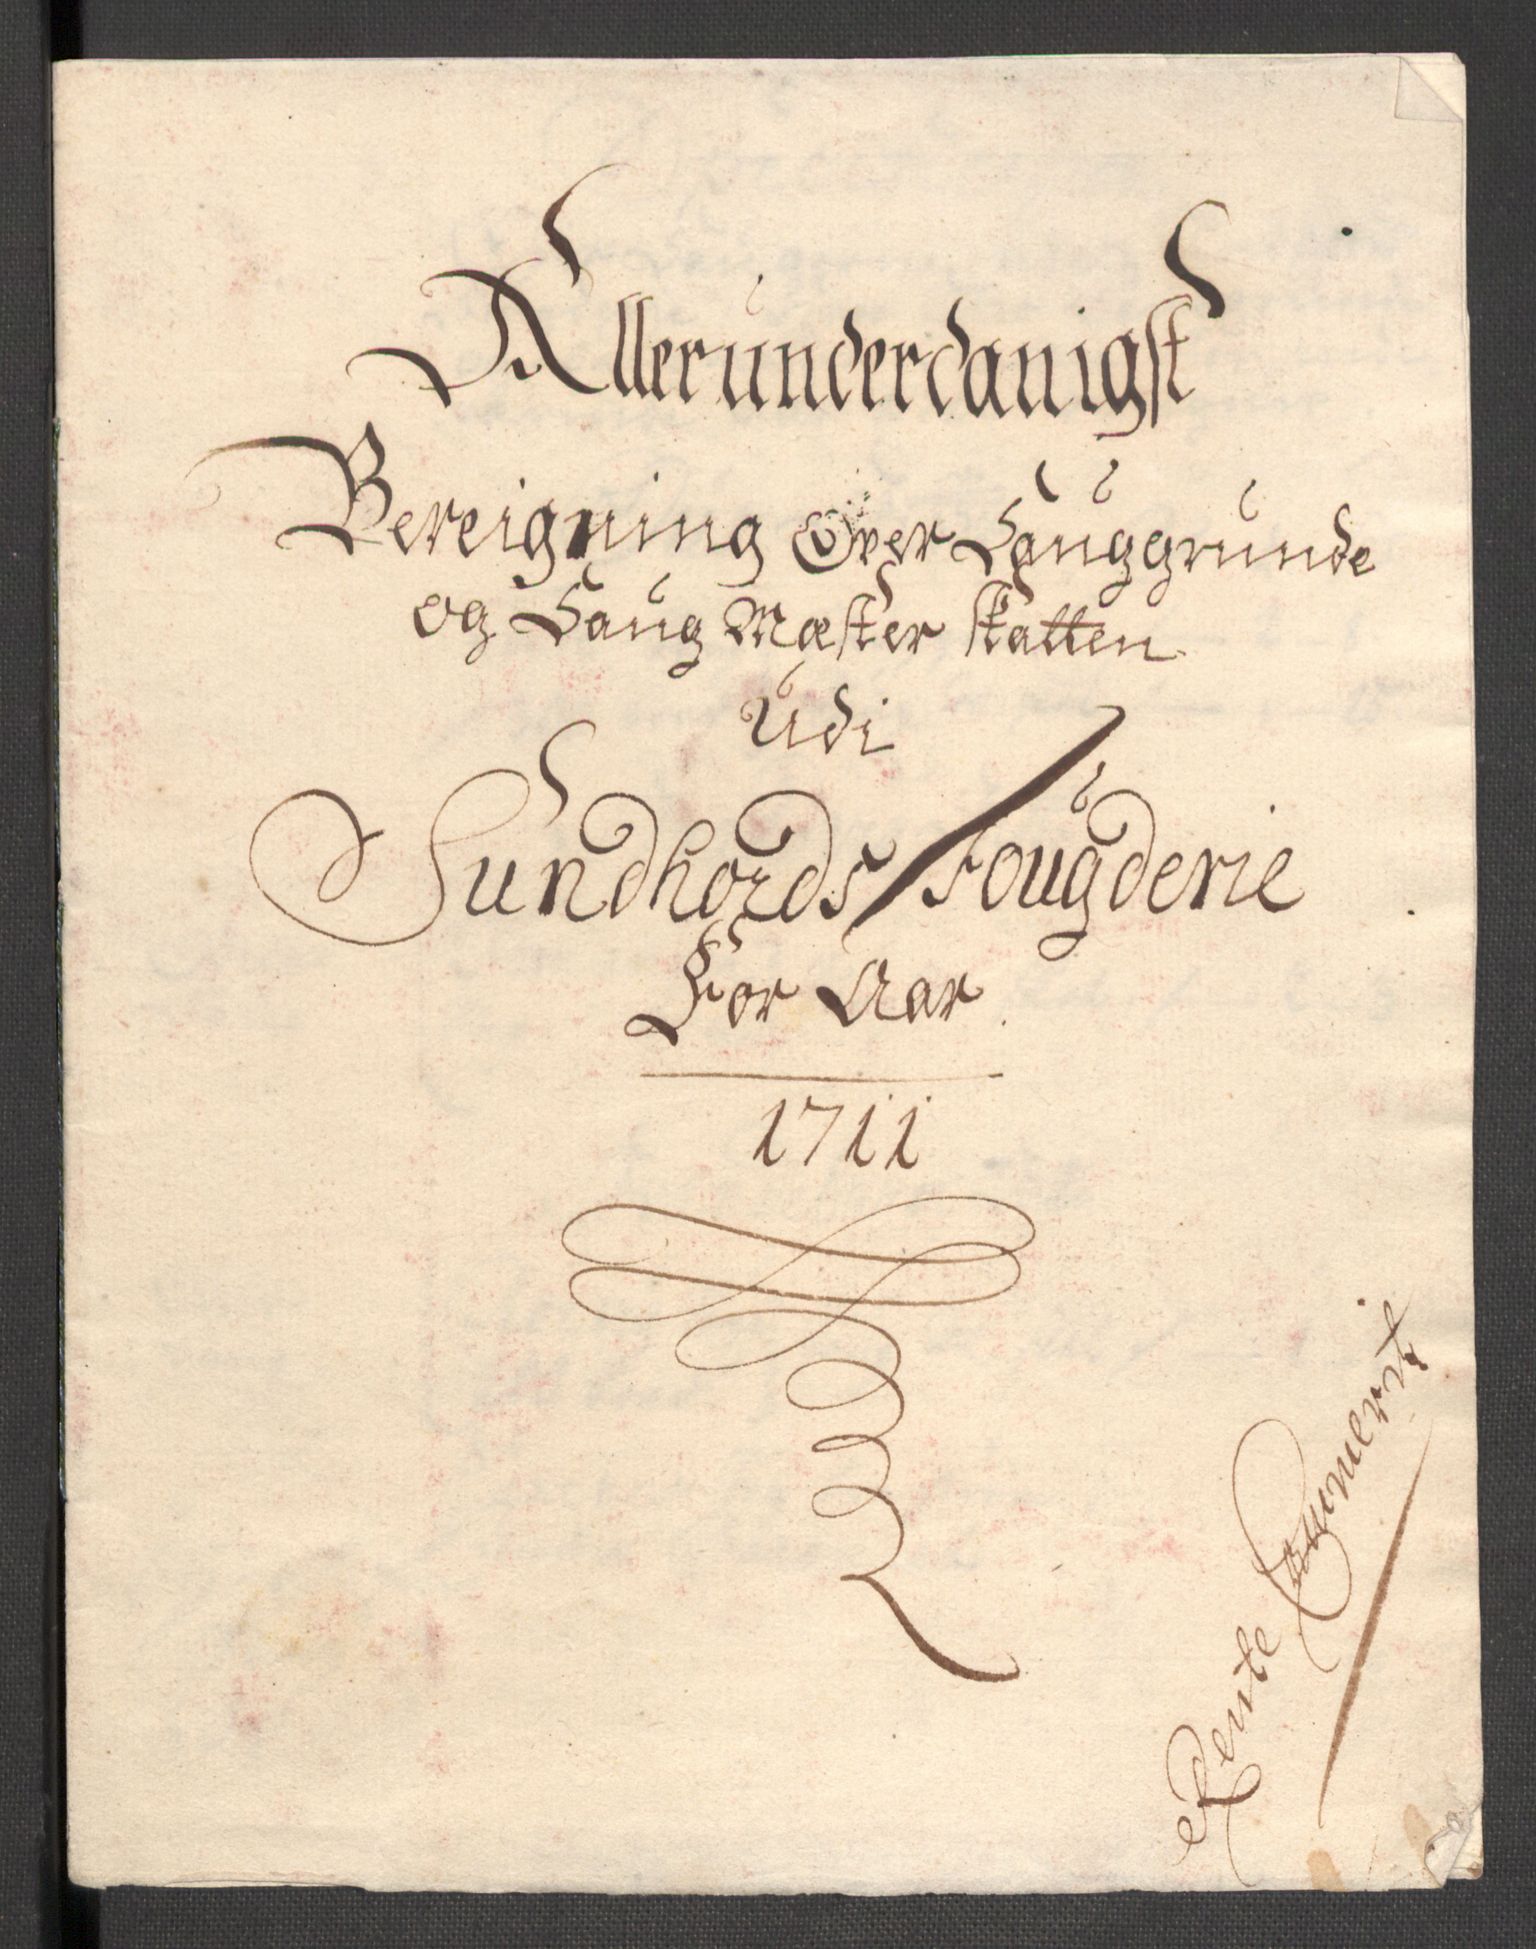 Allerunderdanigst
Bereigning Over Saug grunde
og Saug Mæster skatten
Udi
Sundhords Fougderie
For Aar
1711
Rente Cammerit